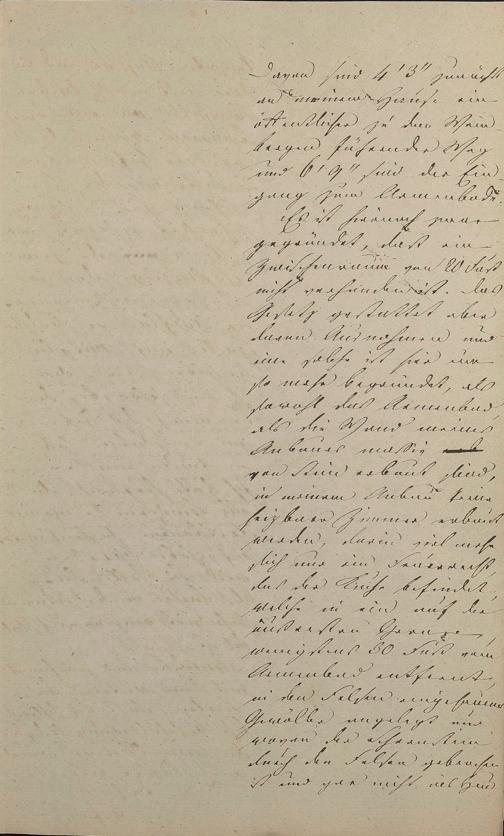 Davon sind 4' 3" zunächst
an meinem Hause ein
öffentlicher zu den Wein
bergen führender Weg
und 6' 9" sind der Ein-
gang zum Armenbade.
Es ist hienach zwar
gegründet, daß ein
Zwischenraum von 20 Fuß
nicht vorhanden ist. Das
Gesetz gestattet aber
davon Ausnahmen und
eine solche ist hier um
so mehr begründet, als
sowohl das Armenbad,
als die Wand meines
Anbaues massiv
von Stein erbaut sind,
in meinem Anbau keine
heizbare Zimmer erbaut
werden, darin viel mehr
sich nur ein Feuerrecht,
das der Küche befindet,
welche in ein auf der
äußersten Grenze
wenigstens 30 Fuß vom
Armenbad entfernt
in den Felsen eingehauenes
Gewölbe angelegt und
wovon der Schornstein
durch den Felsen gebrochen
ist und gar nicht ins Haus